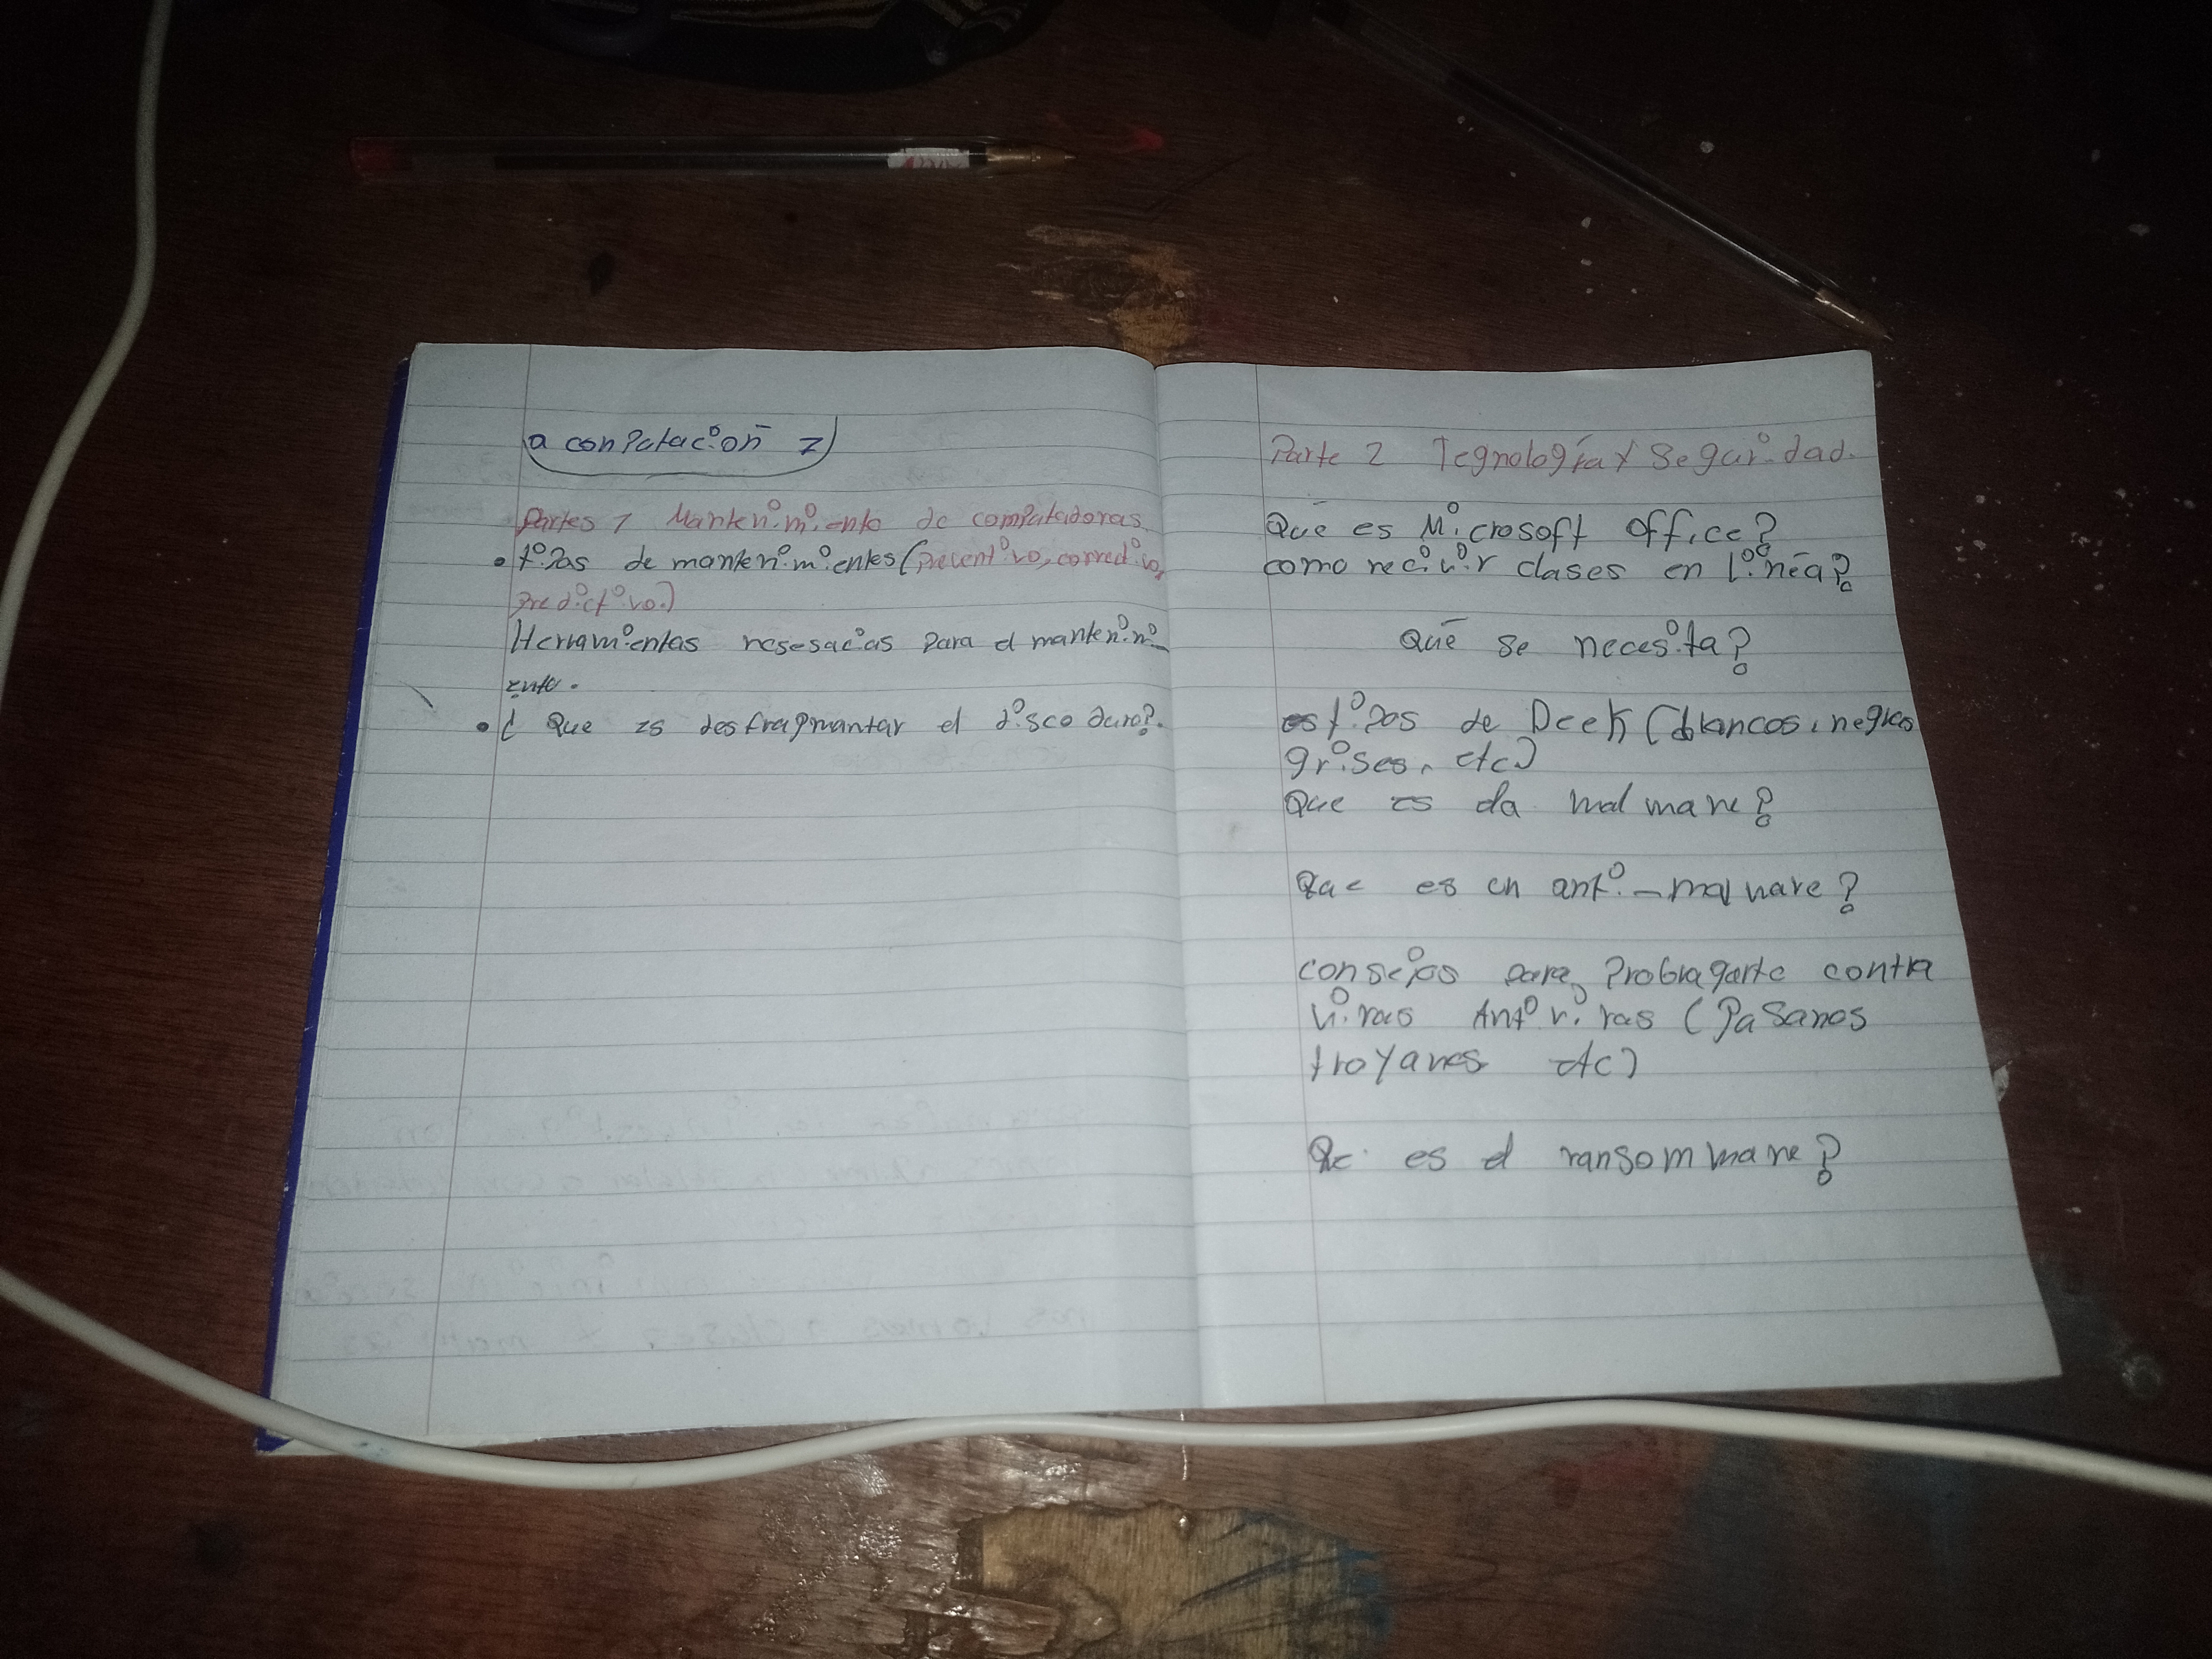 a conputación 2
Partes 1 Mantenimiento de computadoras
• tipos de mantenimientos (preventivo, corredivo,
predictivo.)
Herramientas nesesacias para el mantenimi_
ento.
• ¿ Que es desfragmantar el disco duro?.
Parte 2 Tegnología y Seguridad.
Qué es Microsoft Office?
como recivir clases en línéa?
Qué se necesita?
tipos de Deek (blancos, negros
grises, etc)
Que es da malmare?
Que es un anti-malware?
consejos para contra
virus Antivirus (Pasanos
troyanos etc)
Que es el ransommare?